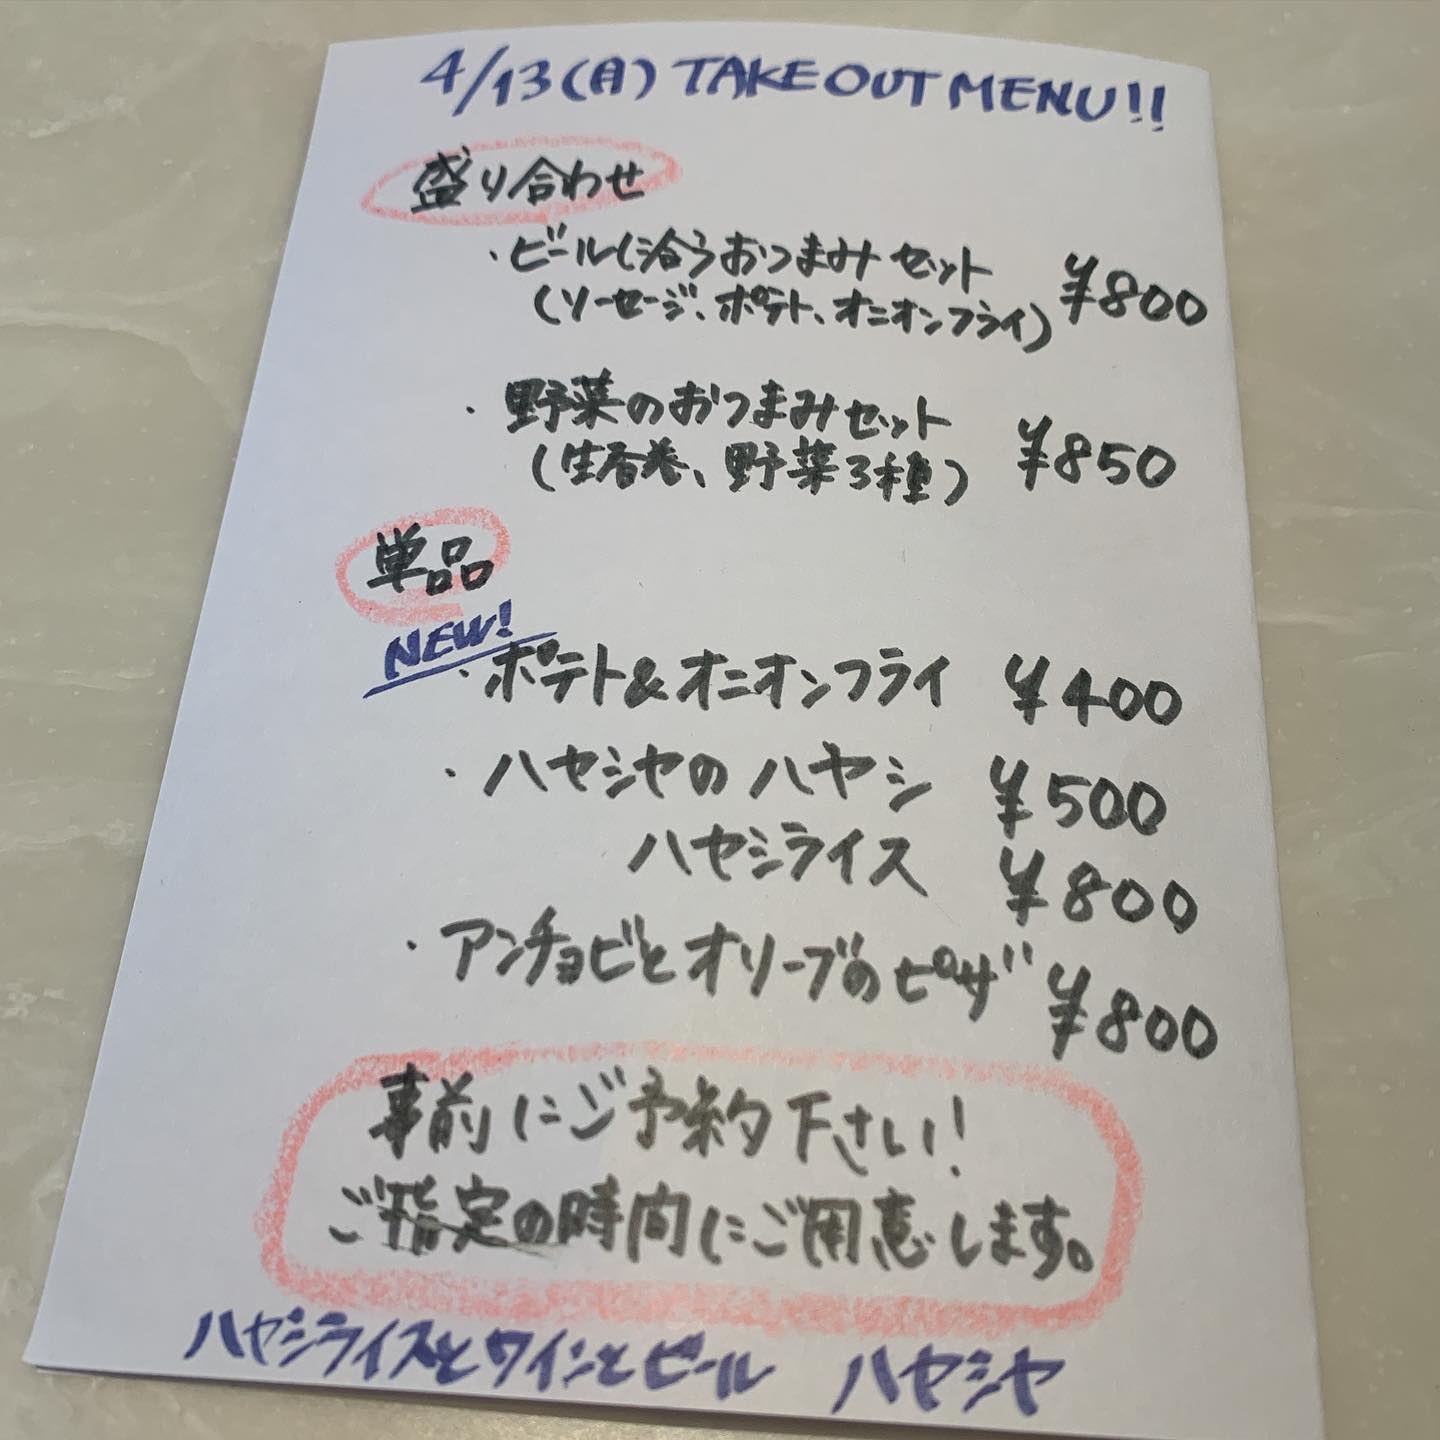 4/13(月) TAKE OUT MENU!!
盛り合わせ
・ビールに合うおつまみセット ¥800
(ソーセージ、ポテト、オニオンフライ)
・野菜のおつまみセット ¥850
(生春巻、野菜3種)
単品
NEW!
・ポテト&オニオンフライ ¥400
・ハヤシヤのハヤシ ¥500
ハヤシライス ¥800
・アンチョビとオリーブのピザ ¥800
事前にご予約下さい!
ご指定の時間にご用意します。
ハヤシライスとワインとビール ハヤシヤ